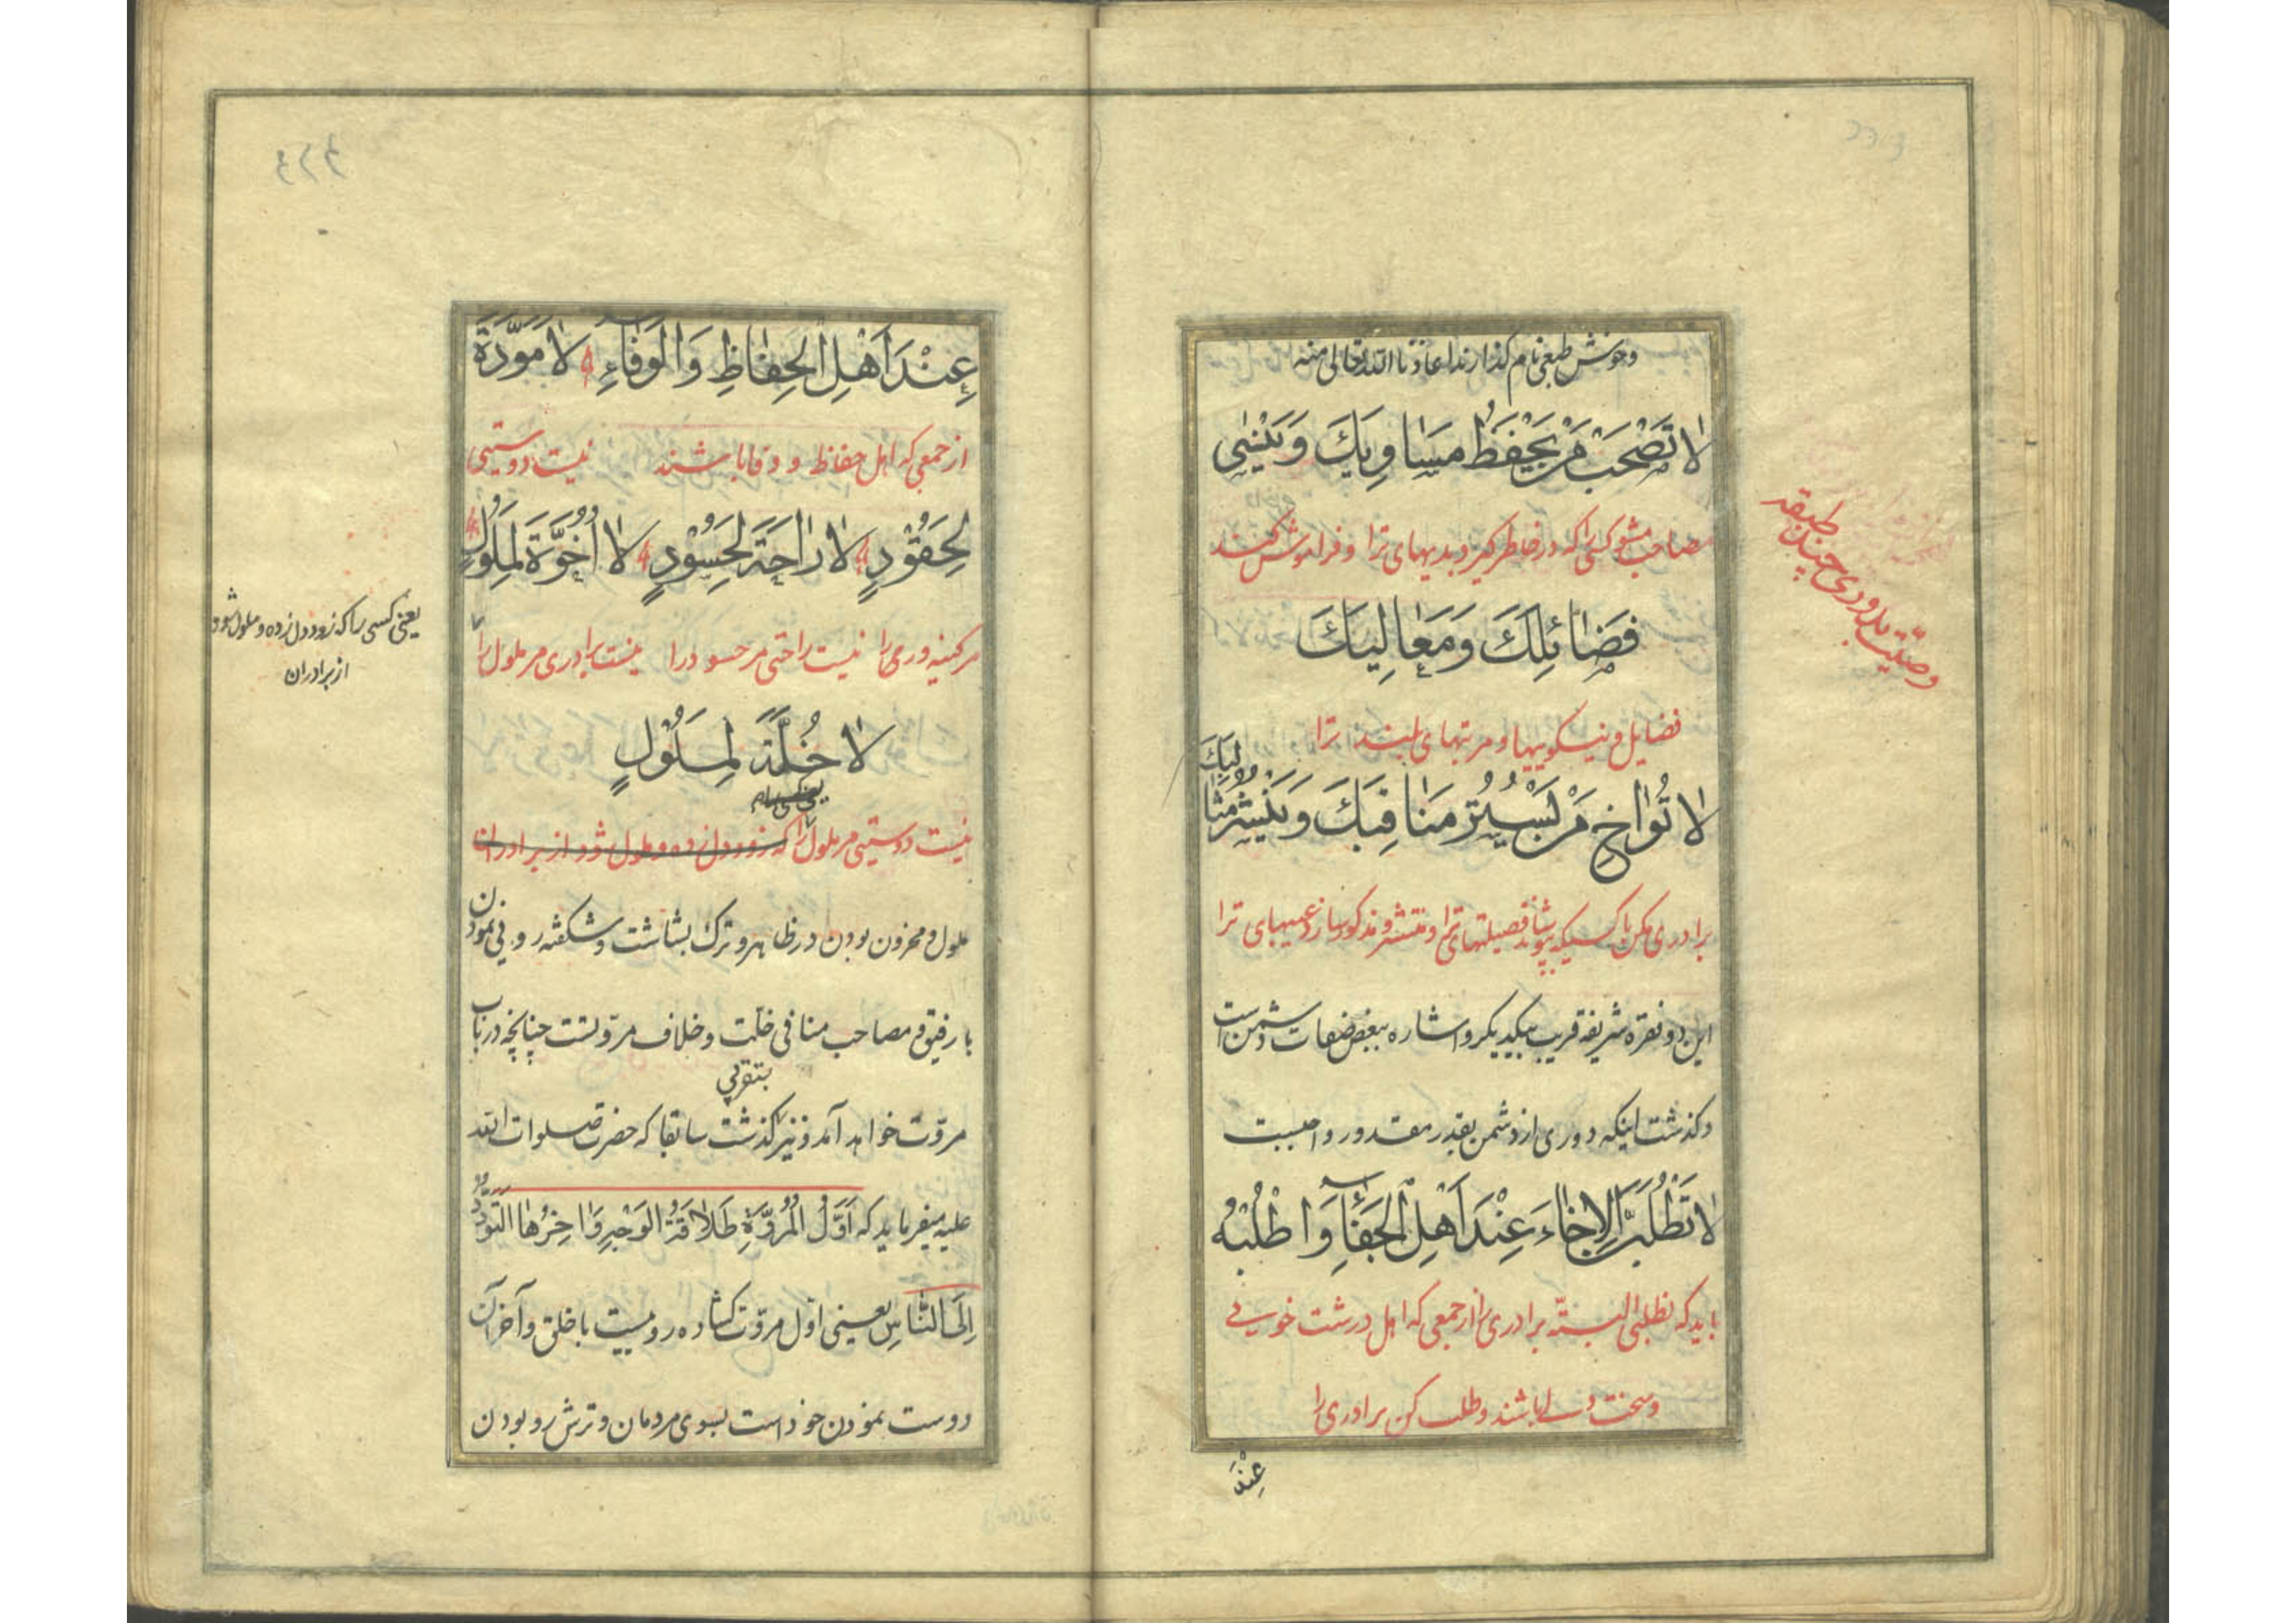 وخوش طبعی نام گذارند اعاذنا الله تعالی منه
لا تَصْحَبْ مَنْ يَحْفَظُ مَسَاوِيَكَ وَيَنْسٰى
مصاحب مشو کسی را که در خاطر گیرد بدیهای ترا و فراموش کند
فَضَائِلَكَ وَمَعَالِيَكَ
فضایل و نیکوییها و مرتبهای بلند ترا
لا تُوَاخِ مَنْ يَسْتُرُ مَنَاقِبَكَ وَيَنْشُرُ مَثَالِبَكَ
برادری مکن با کسیکه بپوشاند فضیلتهای ترا و منتشر و مذکور سازد عیبهای ترا
این دو فقره شریفه قریب بیکدیگر و اشاره ببعض صفات دشمن است
و گذشت اینکه دوری از دشمن بقدر مقدور واجبست
لا تَطْلُبَنَّ الاِخَاءَ عِنْدَ اَهْلِ الْجَفَاءِ وَاطْلُبْهُ
باید که نطلبی البتّه برادری را از جمعی که اهل درشت خویی
و سخت دلی باشند و طلب کن برادری را
عِنْدَ
وصیّت برادری چند طبقه
عِنْدَ اَهْلِ الْحِفَاظِ وَالْوَفَاءِ لا مَوَدَّةَ
از جمعی که اهل حفاظ و وفا باشند نیست دوستیی
لِحَقُوْدٍ لا رَاحَةَ لِحَسُوْدٍ لا اُخُوَّةَ لِمَلُوْلٍ
مر کینه وری را نیست راحتی مر حسود را نیست برادری مر ملول را
لا خُلَّةَ لِمَلُوْلٍ
نیست دوستیی مر ملول را که زود دل زده و ملول شود از برادران
ملول و محزون بودن در ظاهر و ترک بشاشت و شکفته رویی نمودن
با رفیق و مصاحب منافی خلّت و خلاف مروّتست چنانچه در باب
بتقریبی
مروّت خواهد آمد و نیز گذشت سابقا که حضرت صلوات الله
علیه میفرماید که اَوَّلُ الْمُرُوَّةِ طَلاقَةُ الْوَجْهِ وَاٰخِرُهَا التَّوَدُّدُ
اِلَى النَّاسِ یعنی اوّل مروّت گشاده روییست با خلق و آخر آن
دوست نمودن خود است بسوی مردمان و ترش رو بودن
یعنی کسی را که زود دل زده و ملول شود
از برادران